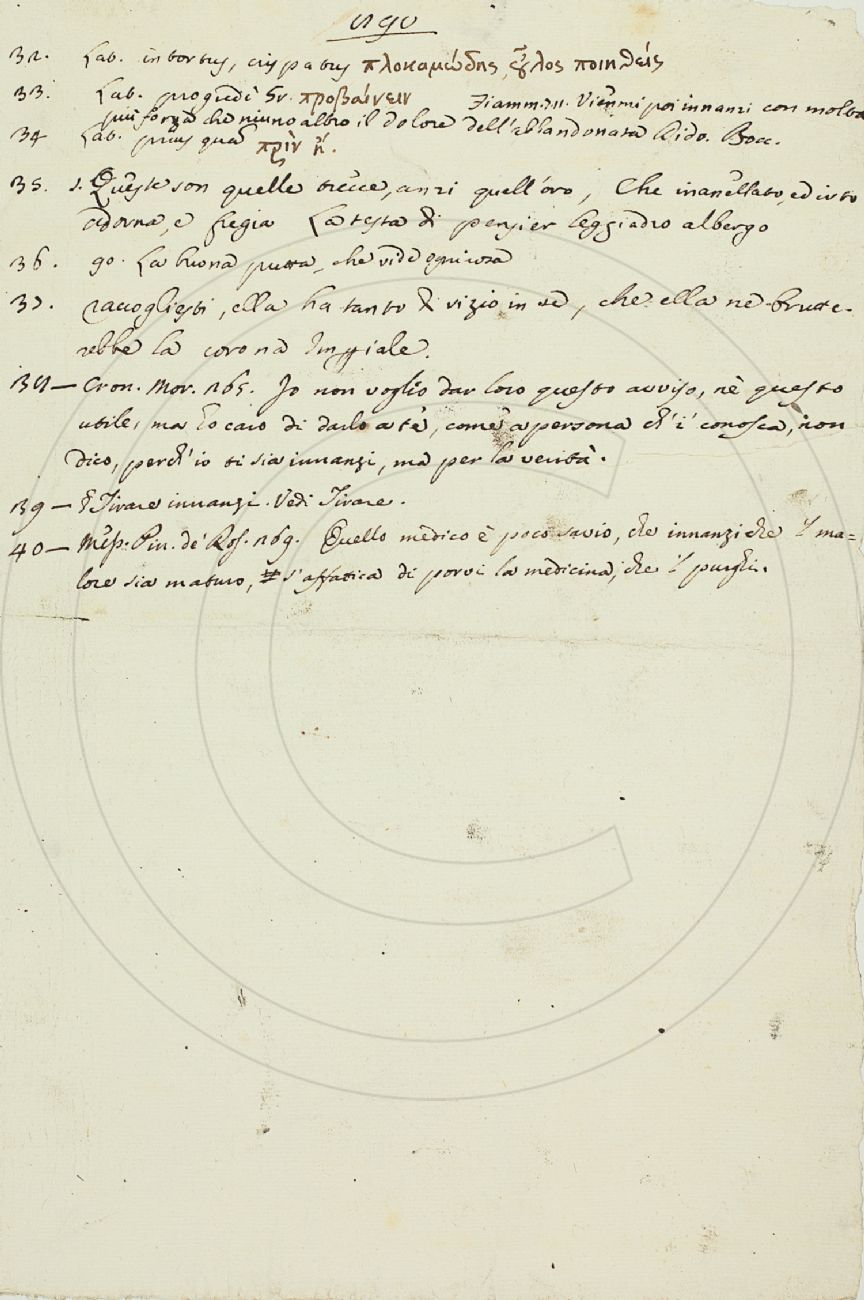 890
32. Lat. intortus, crispatus πλοκαμώδης, οὖλος ποιηθείς
33. Lat. progredi Gr. προβαίνειν Fiamm. 711. Viemmi poi innanzi con molta
più forza che niuno altro il dolore dell'abbandonata Dido. Bocc.
34 Lat. prius quam πρὶν ἤ.
35. s. Queste son quelle trecce, anzi quell'oro, Che inanellato, ed irto
adorna, e fregia La testa di pensier leggiadro albergo
36. 90. La buona putta, che vide ogni cosa
37. raccogliesti, ella ha tanto di vizio in sè, che ella ne brutte-
rebbe la corona Imperiale.
38 — Cron. Mor. 265. Io non voglio dar loro questo avviso, nè questo
utile, ma ho caro di darlo a te, come a persona ch' i' conosca, non
dico, perch' io ti sia innanzi, ma per la verità.
39 — E Tirare innanzi. Vedi Tirare.
40 — Mess. Pin. de' Ros. 269. Quello medico è poco savio, che innanzi che 'l ma=
lore sia maturo, s'affatica di porvi la medicina, che 'l purghi.